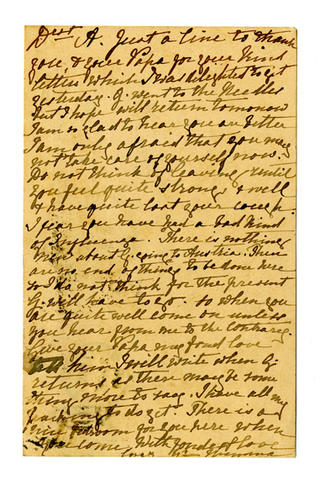 Dest A. Just a line to thank
you & your Papa for your kind
letters which I was delighted to get
yesterday. G. went to the Needles
but I hope will return tomorrow
I am so glad to hear you are better
I am only afraid that you may
not take care of yourself now.
Do not think of leaving until
you feel quite strong & well
& have quite lost your cough.
I fear you have had a bad kind
of Influenza. There is nothing
new about G. going to Austria. There
are no end of things to be done here
so I do not think for the present
G. will have to go. So when you
are quite well come on unless
you hear from me to the contrary.
Give your Papa my fond love
tell him I will write when G.
returns as then may be some
thing more to say. I have all my
packing to do yet. There is a
nice bedroom for you here when
you come. With fondest love